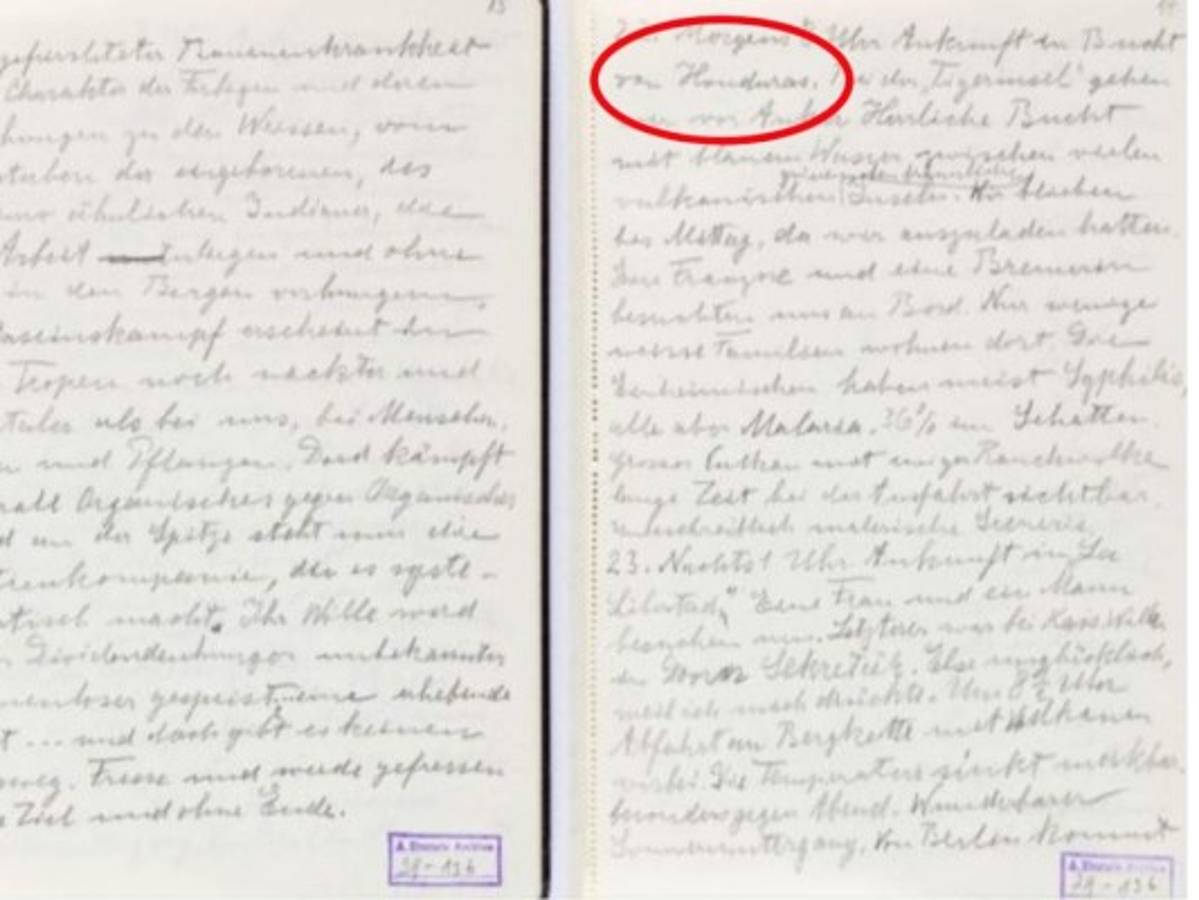 13
Charakter der Farbigen und deren
zu den Weissen, vom
der eingeborenen, des
ähnlichen Indianer, die
Arbeit und ohne
in den Bergen verhungern.
Daseinskampf erscheint in
Tropen noch nackter und
als bei uns, bei Menschen,
und Pflanzen. Dort kämpft
Organisches gegen Organisches
an der Spitze steht nun die
, die es syste-
macht. Ihr Wille wird
Dividendenhunger unbekannter
gespeist. eine erhebende
... und doch gibt es keinen
Fresse und werde gefressen
Ziel und ohne Ende.
A. Einstein Archive
29-136
22. Morgens Uhr Ankunft in Bucht
von Honduras. der "Tigerinsel" gehen
vor Anker Herrliche Bucht
mit blauem Wasser zwischen vielen
vulkanischen Inseln. Wir blieben
bis Mittag, da wir auszuladen hatten.
Ein Franzose und eine Bremerin
besuchten uns an Bord. Nur wenige
weisse Familien wohnen dort. Die
Einheimischen haben meist Syphilis,
alle aber Malaria. 36° im Schatten.
Grosser Vulkan mit Rauchwolke
lange Zeit bei der Ausfahrt sichtbar.
malerische Scenerie.
23. Nachts 1 Uhr Ankunft in "La
Libertad". Eine Frau und ein Mann
besuchen uns. Letzterer war bei Kais. Wilh.
in Doorn Sekretär. Else unglücklich,
weil ich mich drückte. Um 8½ Uhr
Abfahrt an Bergkette mit Vulkanen
vorbei. Die Temperatur sinkt merkbar,
besonders gegen Abend. Wunderbarer
Sonnenuntergang. Von Berlin kommt
A. Einstein Archive
29-136